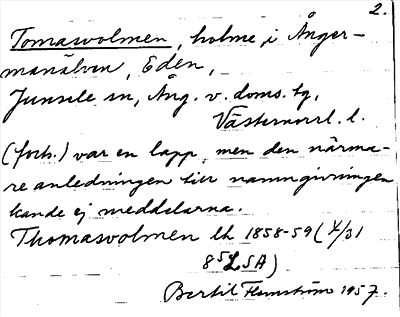 2.
Tomasvolmen, holme, i Ånger-
manälven, Eden,
Junsele sn, Ång. v. doms. tg,
Västernorrl. l.
(forts.) var en lapp, men den närma-
re anledningen till namngivningen
kände ej meddelarna.
Thomasvolmen lh 1858-59 (4/31
LSA)
Bertil Flemström 1957.